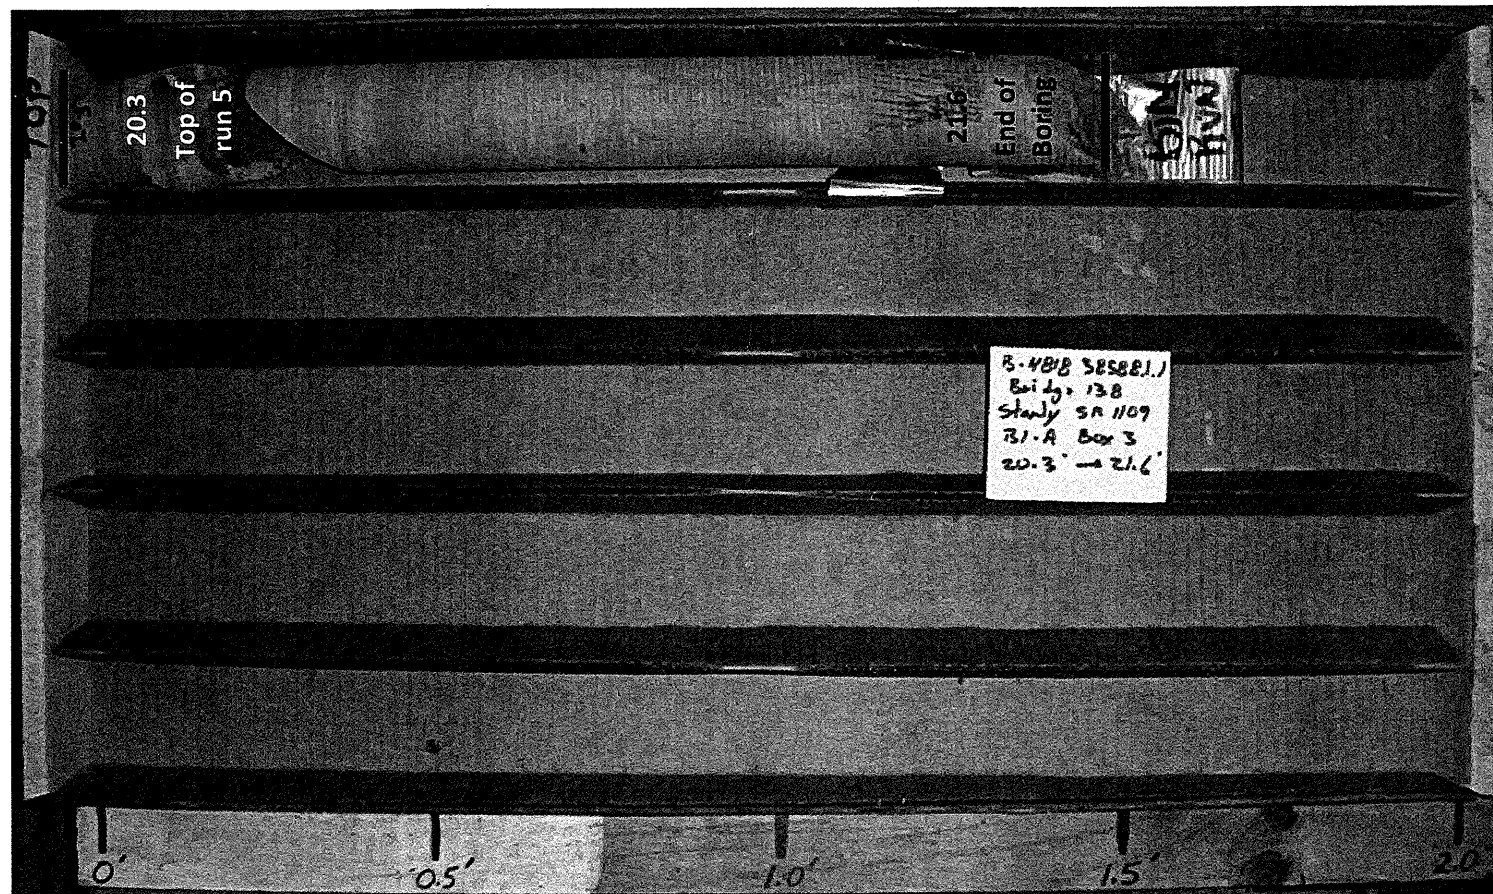 TOP
20.3
Top of
run 5
21.6
End of
Boring
B-4818 38588.1.1
Bridge 138
Stanly SR 1109
B1-A Box 3
20.3' → 21.6'
0'
0.5'
1.0'
1.5'
2.0'